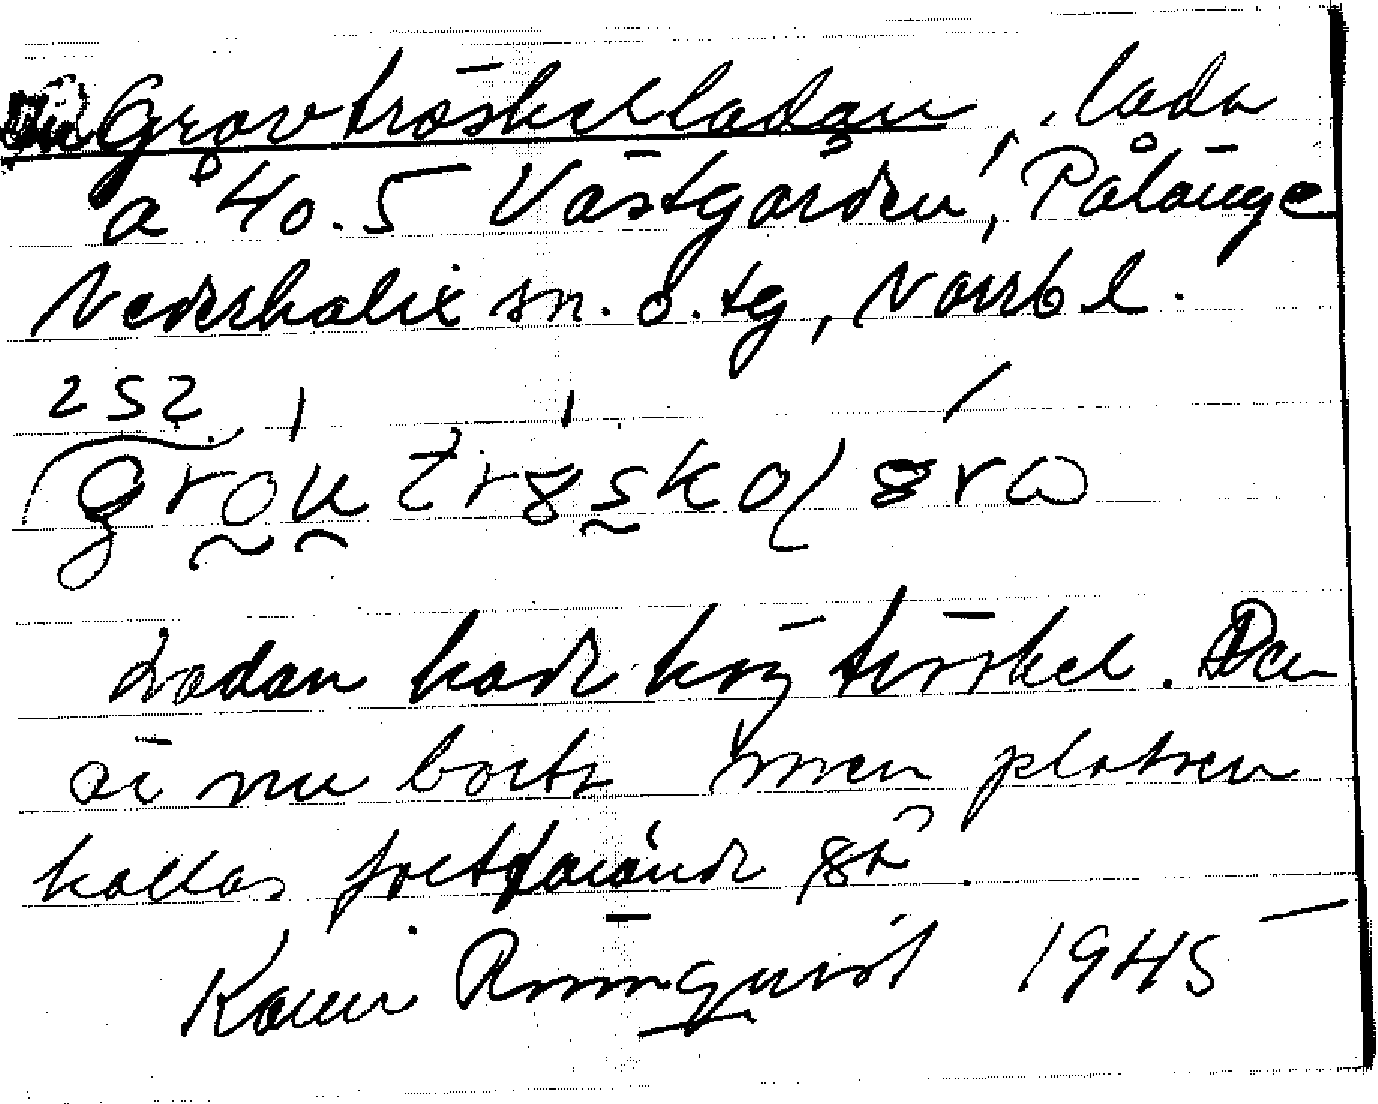 Grovtröskelladan, lada
å 40.5 Västgården, Pålänge
Nederkalix sn. o. tg, Norrb l.
252
Ladan hade hög tröskel. Den
är nu borta men platsen
kallas fortfarande så.
Karin Rönnquist 1945